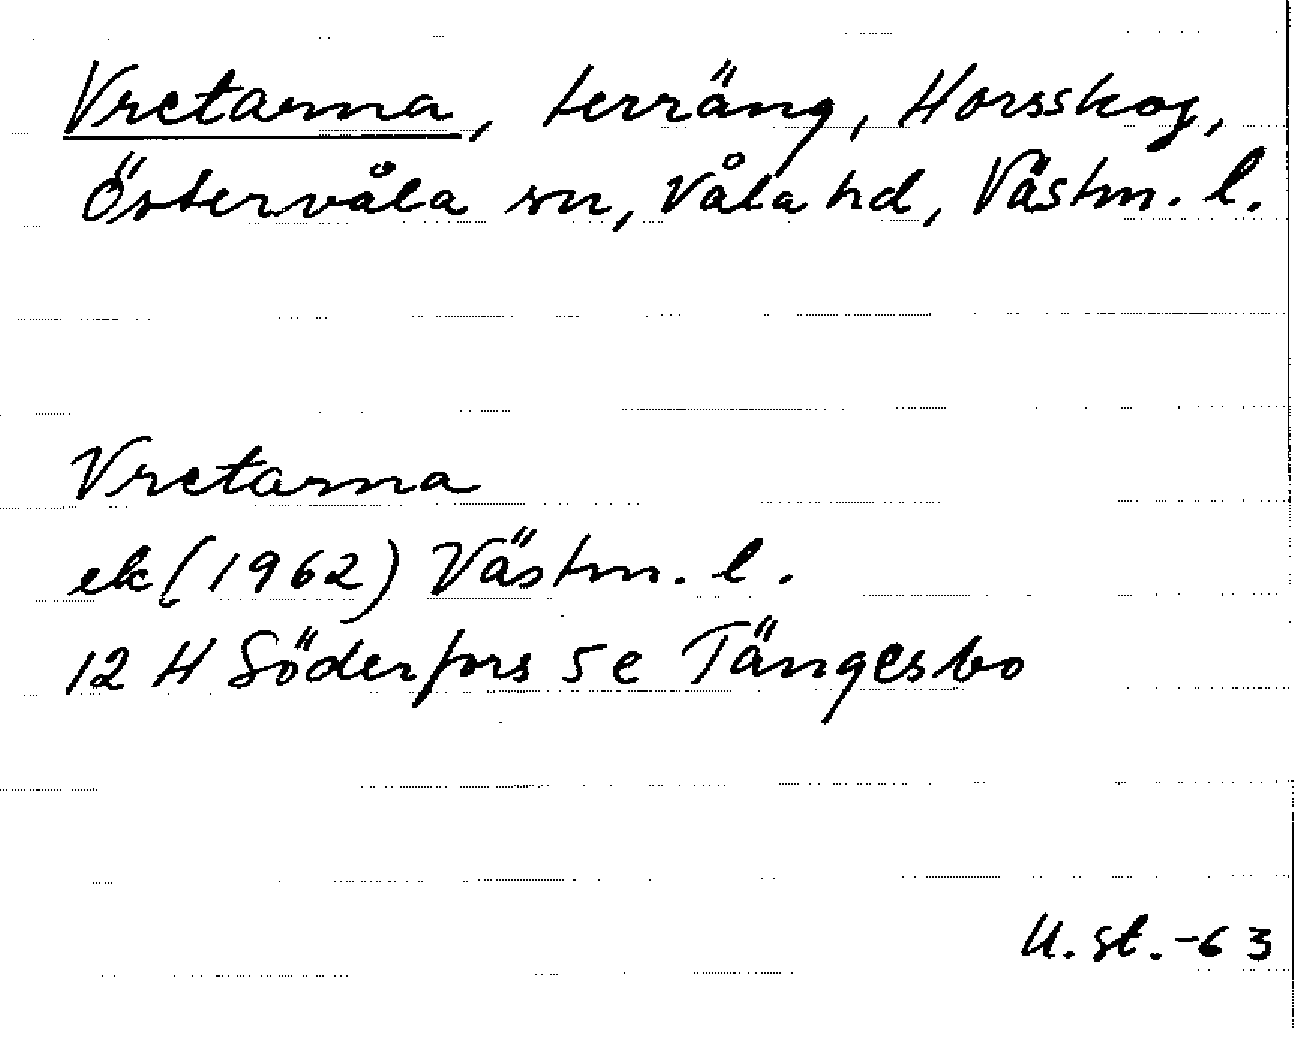 Vretarna, terräng, Horsskog,
Östervåla sn, Våla hd, Västm. l.
Vretarna
ek (1962) Västm. l.
12 H Söderfors 5 e Tängesbo
U. st. -63